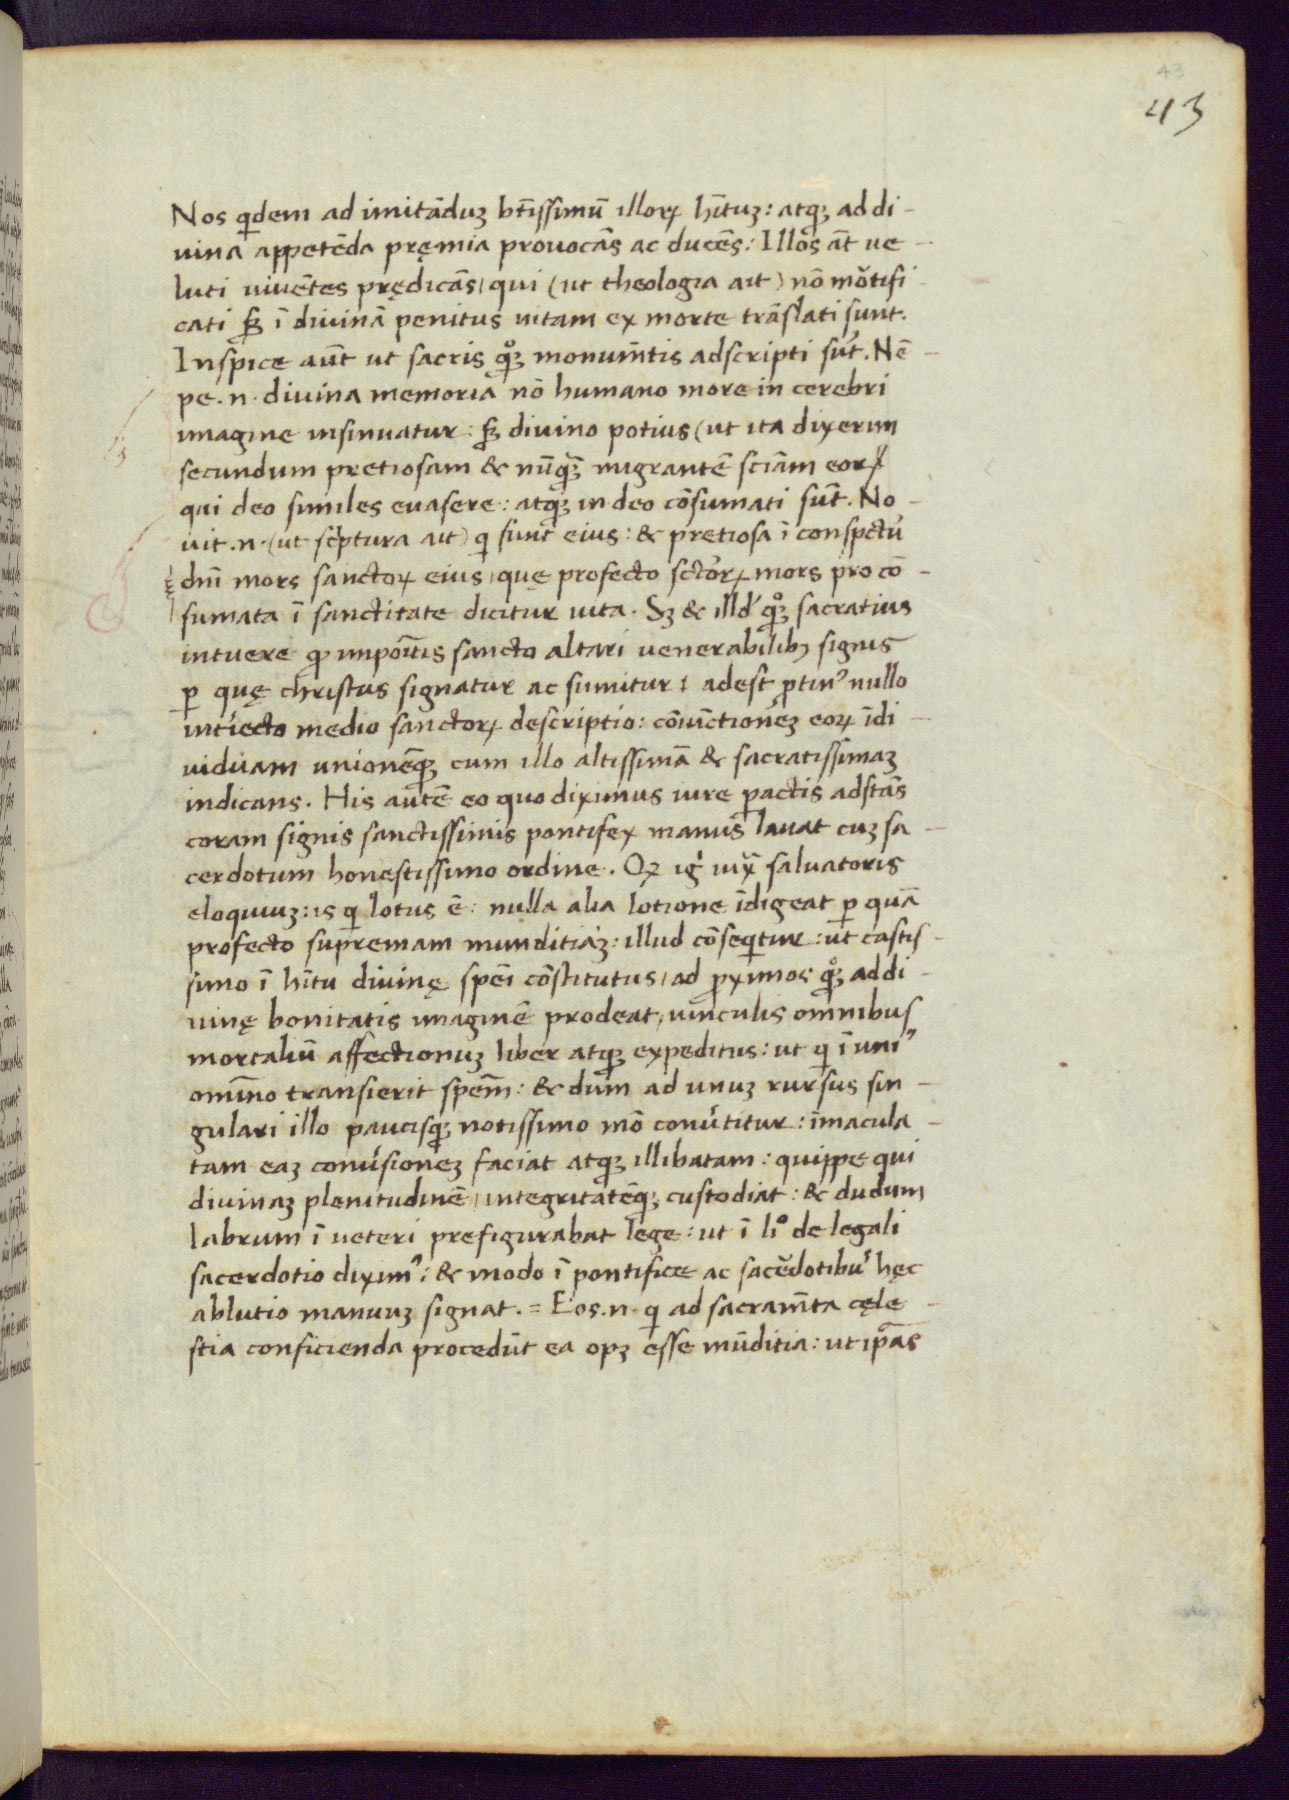 43
43
Nos qdem ad imitāduꝫ bt̄issimū illoꝝ h̄ituꝫ: atqꝫ ad di-
uina appetēda pręmia prouocās ac ducēs: Illos āt ue-
luti uiuētes prędicās, qui (ut theologia ait) nō mōtifi-
cati sꝫ ī diuinā penitus uitam ex morte trāslati sunt.
Inspice aūt ut sacris qͦꝫ monum̄tis adscripti sūt. Nē-
pe .n. diuina memoria nō humano more in cerebri
imagine insinuatur: sꝫ diuino potius (ut ita dixerim
secundum pretiosam & nūqꝫ migrantē sciām eoꝝ
qui deo similes euasere: atqꝫ in deo cōsumati sūt. No-
uit .n. (ut sc͛ptura ait) q sunt eius: & pretiosa ī conspctū
dn̄i mors sanctoꝝ eius, quę profecto sctōꝝ mors pro cō-
sumata ī sanctitate dicitur uita. Sꝫ & illd' qͦꝫ sacratius
intuere ꝙ impōitis sancto altari uenerabilibꝫ signis
ꝑ quę christus signatur ac sumitur: adest ꝓtinꝰ nullo
int͛iecto medio sanctoꝝ descriptio: cōiūctioneꝫ eoꝝ īdi-
uiduam unionēqꝫ cum illo altissimā & sacratissimaꝫ
indicans. His autē eo quo diximus iure ꝑactis adstās
coram signis sanctissimis pontifex manus lauat cuꝫ sa-
cerdotum honestissimo ordine. Qꝫ ig͛ iux̄ saluatoris
eloquiuꝫ: is q lotus ē: nulla alia lotione īdigeat ꝑ quā
profecto supremam munditiaꝫ: illud cōseqtur: ut castis-
simo ī h̄itu diuinę spēi cōstitutus, ad ꝓximos qͦꝫ ad di-
uinę bonitatis imaginē prodeat, uinculis omnibus
mortaliū affectionuꝫ liber atqꝫ expeditus: ut q ī uniꝰ
omīno transierit spēm: & dum ad unuꝫ rursus sin-
gulari illo paucisqꝫ notissimo mō conu͛titur: īmacula-
tam eaꝫ conu͛sioneꝫ faciat atqꝫ illibatam: quippe qui
diuinaꝫ plenitudinē, integritatēqꝫ custodiat: & dudum
labrum ī ueteri prefigurabat lege: ut ī liͦ de legali
sacerdotio diximꝰ: & modo ī pontifice ac sac͛dotibuꝰ hęc
ablutio manuuꝫ signat. = Eos .n. q ad sacram̄ta cęle-
stia conficienda procedūt ea opꝫ esse mūditia: ut ip̄as